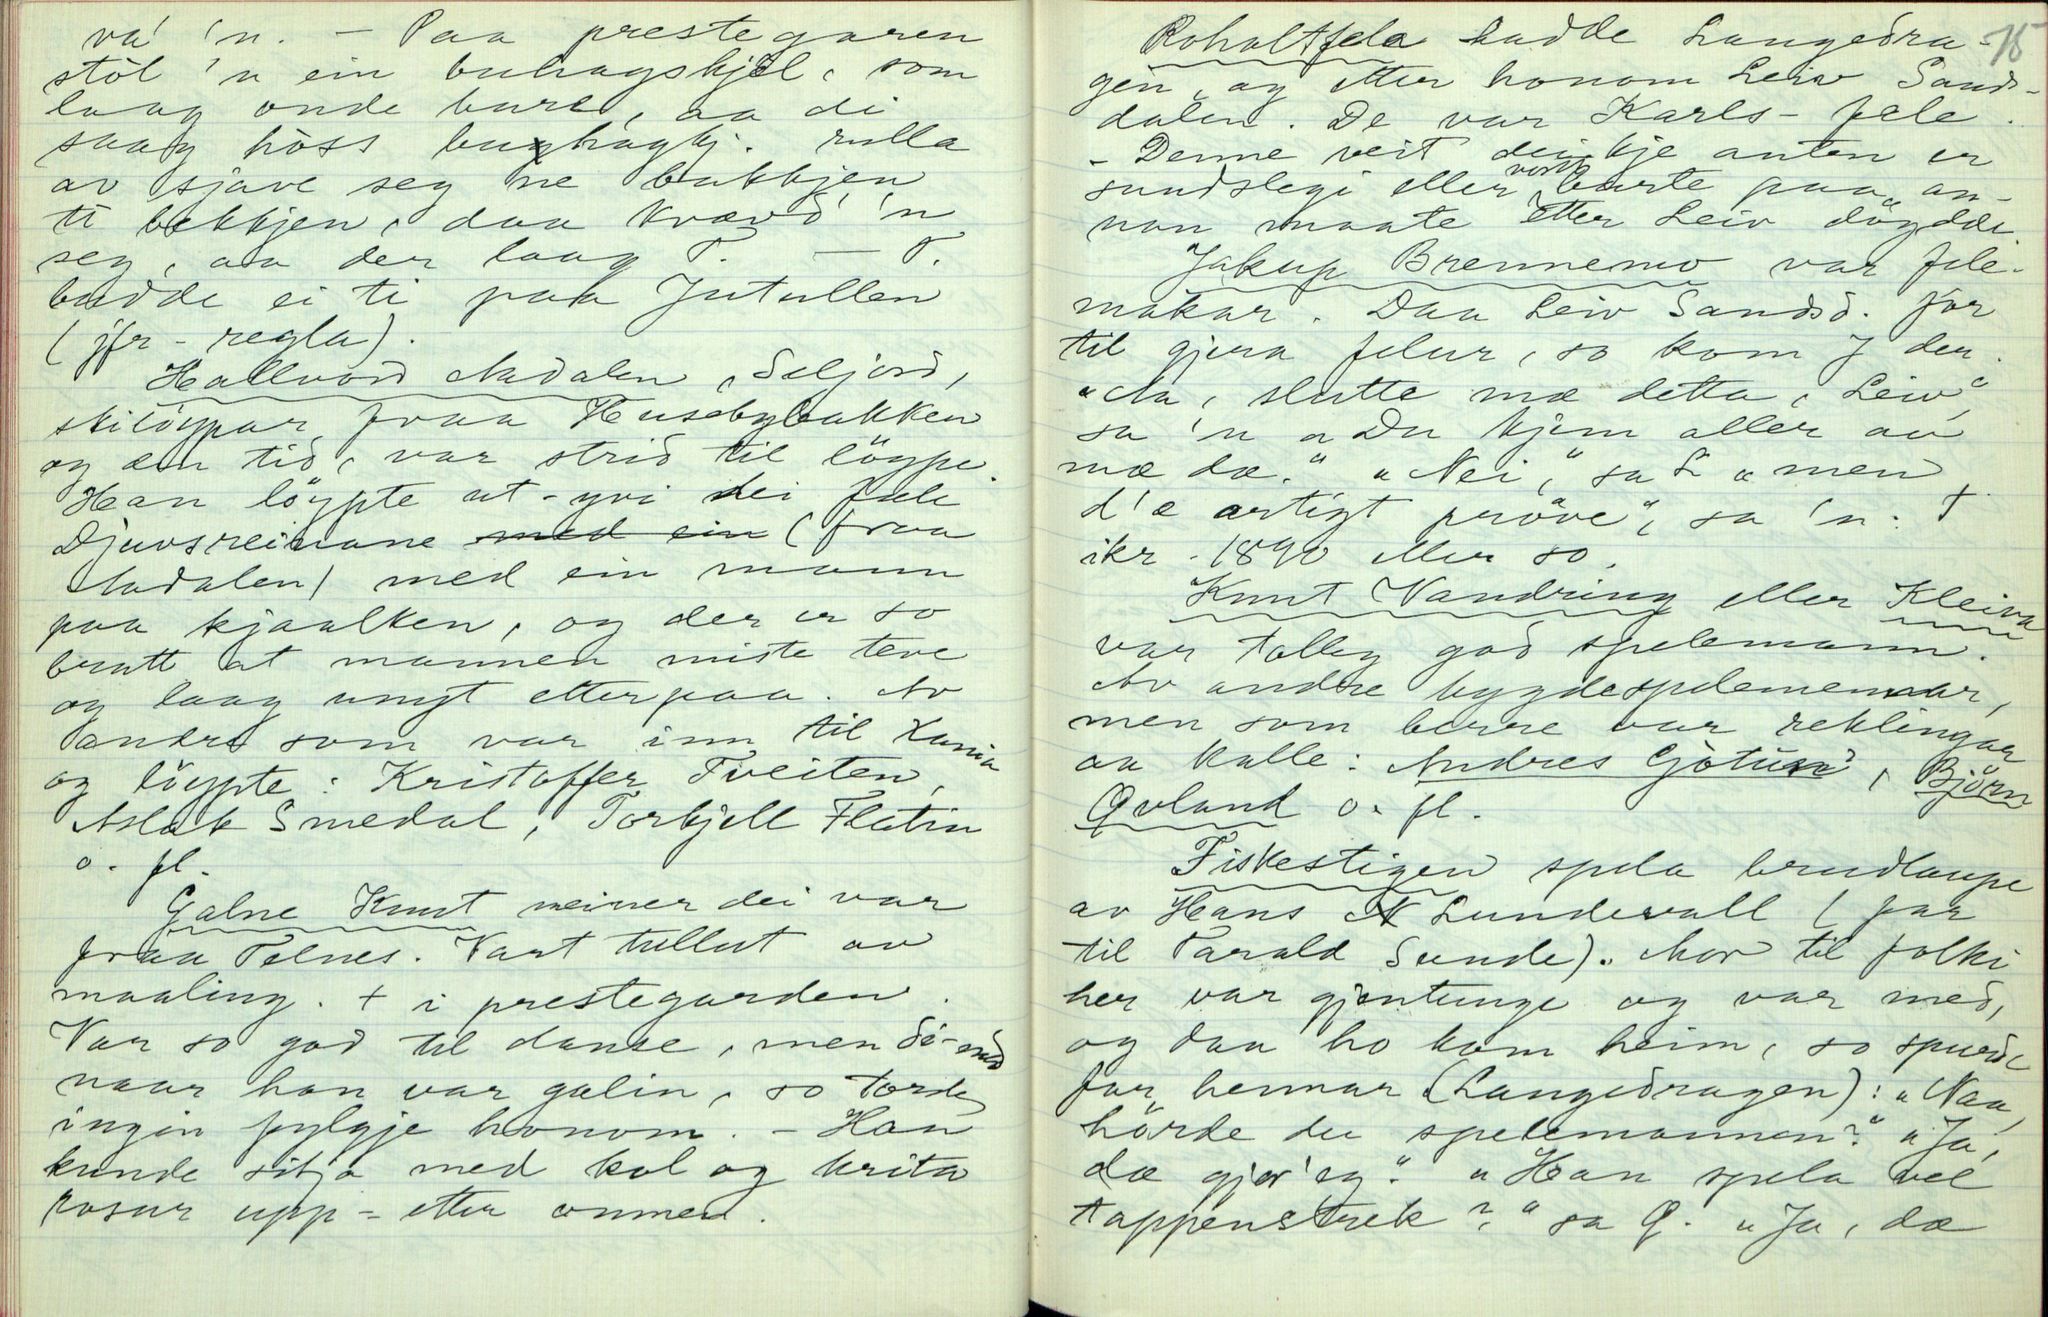 va' 'n. – Paa prestegaren
stòl 'n ein buhagskjòl, som
laag onde bure, aa di
saag hòss buhagkj. rulla
av sjave seg ne bakkjen
ti bekkjen, daa kvævd 'n
seg, aa der laag T. — T.
budde ei ti paa Jutullen
(jfr - regla).
Hallvord Aadalen, Seljord,
skilöypar fraa Husebybakken
og æin tid, var strid til löype.
Han löypte ut-yvi dei fæle
Djuvsreinane med ein (fraa
Aadalen) med ein mann
paa kjaalken, og der er so
bratt at mannen miste teve
og laag umyt etterpaa. Av
andre som var inn til Xania
og löypte: Kristoffer Tveiten,
Aslak Smedal, Torkjell Flatin
o. fl.
Galne Knut meiner dei var
fraa Telnes. Vart tullut av
maaling. + i prestegarden.
Var so god til danse, men di-med
naar han var galin, so torde
ingin fylgje honom. – Han
kunde sitja med kol og krita
rosur upp-etter omnen.
75
Roholtfela hadde Langedra-
gen, og etter honom Leiv Sands-
dalen. De var Karls-fele.
– Denne veit dei kje anten er
sundslegi eller vorte burte paa an-
nan maate etter Leiv döydde.
Jakup Brennemo var fele-
makar. Daa Leiv Sandsd. for
til gjera felur, so kom J der.
"Aa, slutte mæ detta, Leiv,"
sa 'n "Du kjem aller au
mæ dæ." "Nei," sa L "men
d'æ artigt pröve", sa 'n. +
ikr. 1890 eller so.
Knut Vandring eller Kleiva
var tolleg god spelemann.
Av andre bygdespelemennar,
men som berre var reklingar
aa kalle: Andres Gjòtün, Björn
Qvland o. fl.
Fiskestigen spela brudlaupe
av Hans N Lundevall (far
til Tarald Sunde). Mor til folki
her var gjentunge og var med,
og daa ho kom heim, so spurde
far hennar (Langedragen): "Naa,
hörde du spelemannen?" "Ja,
dæ gjor' eg." "Han spela vel
tappenstrek?" sa G. "Ja, dæ